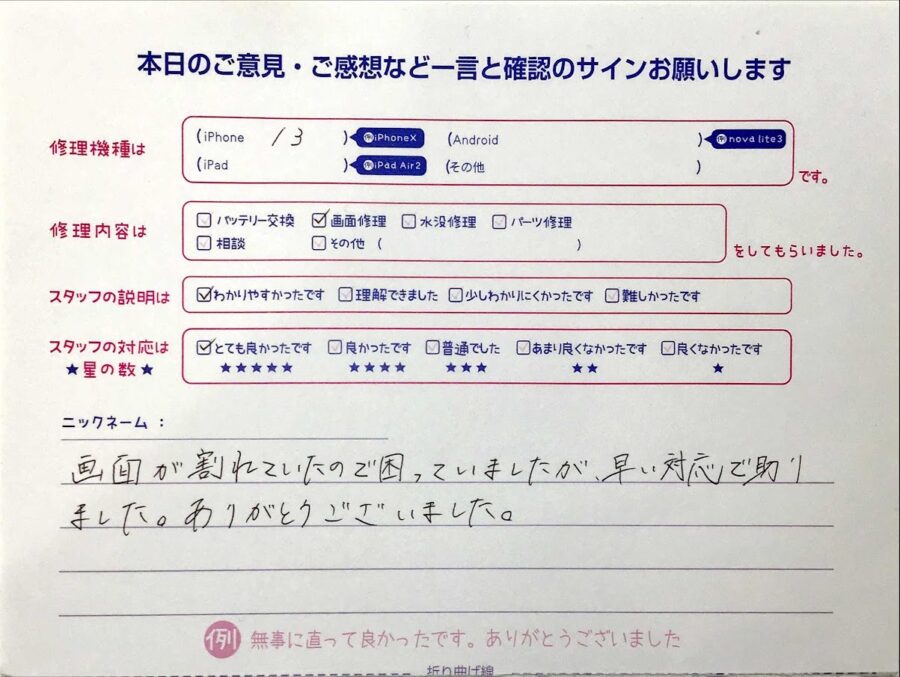 本日のご意見・ご感想など一言と確認のサインお願いします
修理機種は (iPhone 13 ) 例iPhoneX (Android ) 例nova lite3
(iPad ) 例iPad Air2 (その他 ) です。
修理内容は □バッテリー交換 ☑画面修理 □水没修理 □パーツ修理
□相談 □その他 ( ) をしてもらいました。
スタッフの説明は ☑わかりやすかったです □理解できました □少しわかりにくかったです □難しかったです
スタッフの対応は ☑とても良かったです □良かったです □普通でした □あまり良くなかったです □良くなかったです
★星の数★ ★★★★★ ★★★★ ★★★ ★★ ★
ニックネーム：
画面が割れていたので困っていましたが、早い対応で助り
ました。ありがとうございました。
例 無事に直って良かったです。ありがとうございました
折り曲げ線